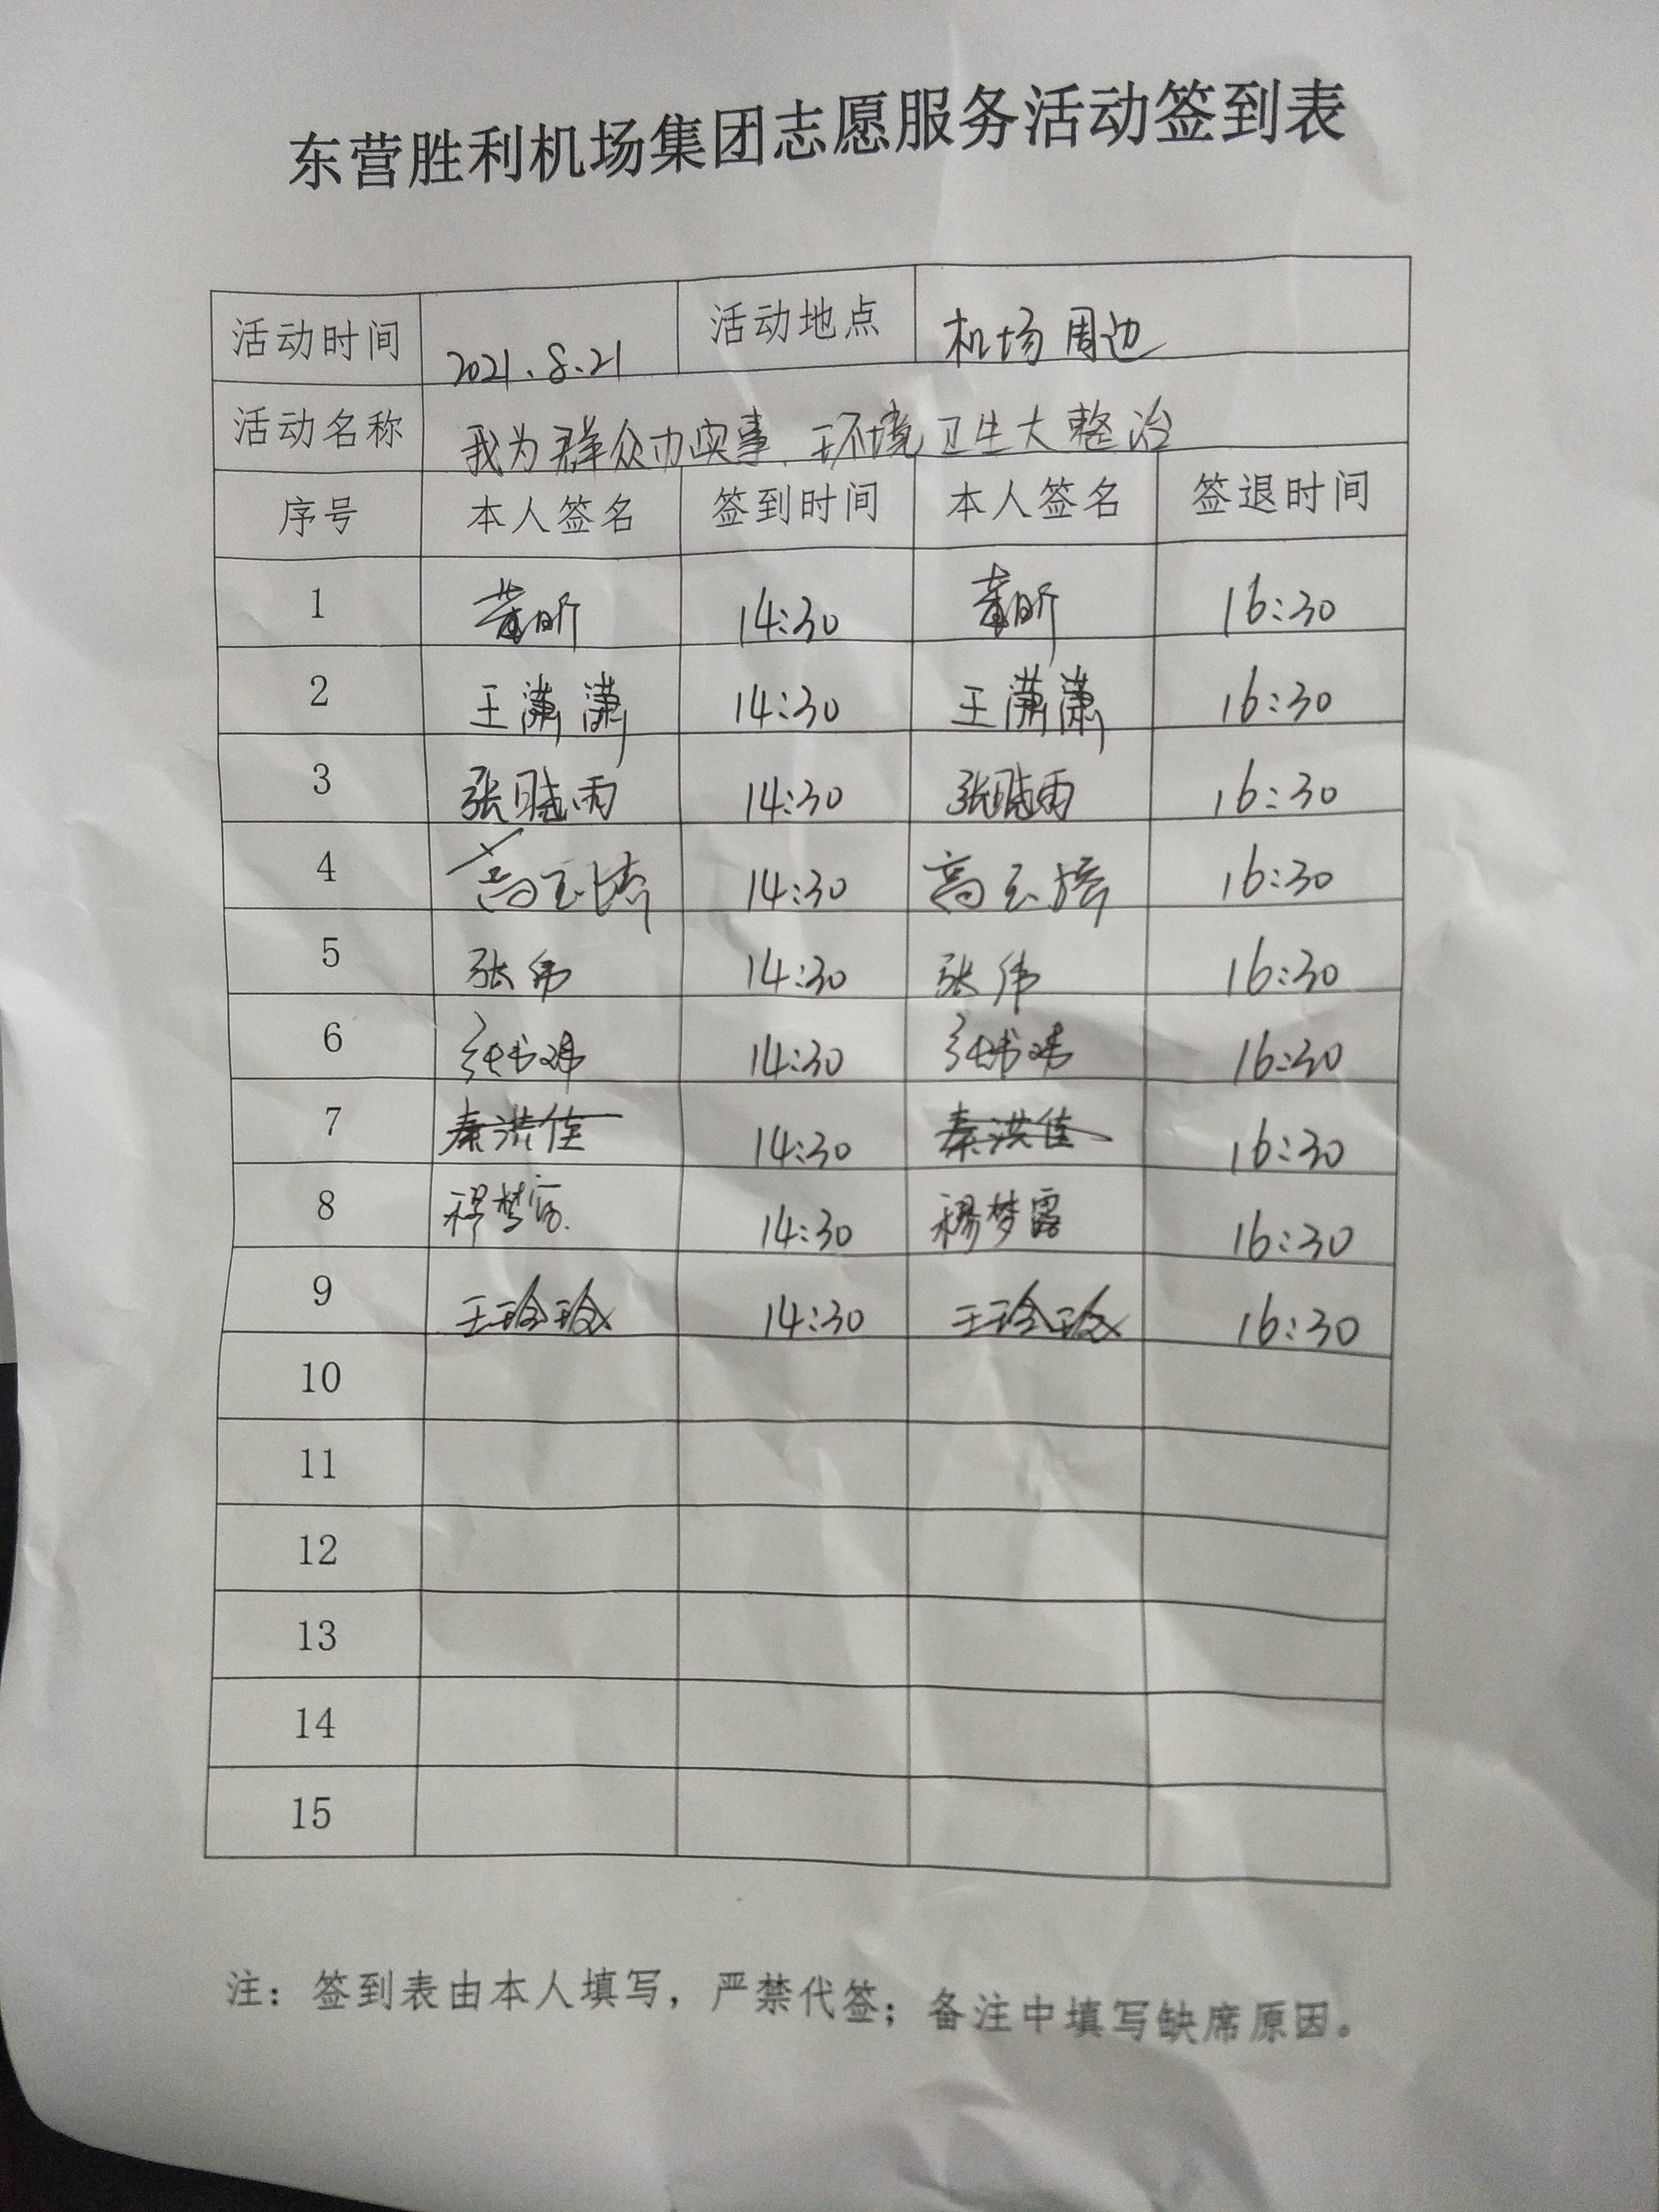 东营胜利机场集团志愿服务活动签到表
活动时间 2021.8.21 活动地点 机场周边
活动名称 我为群众办实事、环境卫生大整治
序号 本人签名 签到时间 本人签名 签退时间
1 董昕 14:30 董昕 16:30
2 王潇潇 14:30 王潇潇 16:30
3 张晓雨 14:30 张晓雨 16:30
4 14:30 16:30
5 张伟 14:30 张伟 16:30
6 14:30 16:30
7 秦洪佳 14:30 秦洪佳 16:30
8 穆梦露 14:30 穆梦露 16:30
9 王玲玲 14:30 王玲玲 16:30
10
11
12
13
14
15
注：签到表由本人填写，严禁代签；备注中填写缺席原因。